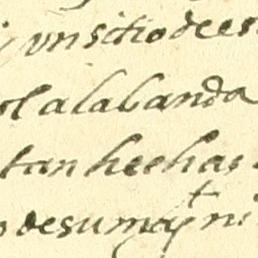 vn sitio de es
ol a la banda
tan hechas
de su mag^t ni